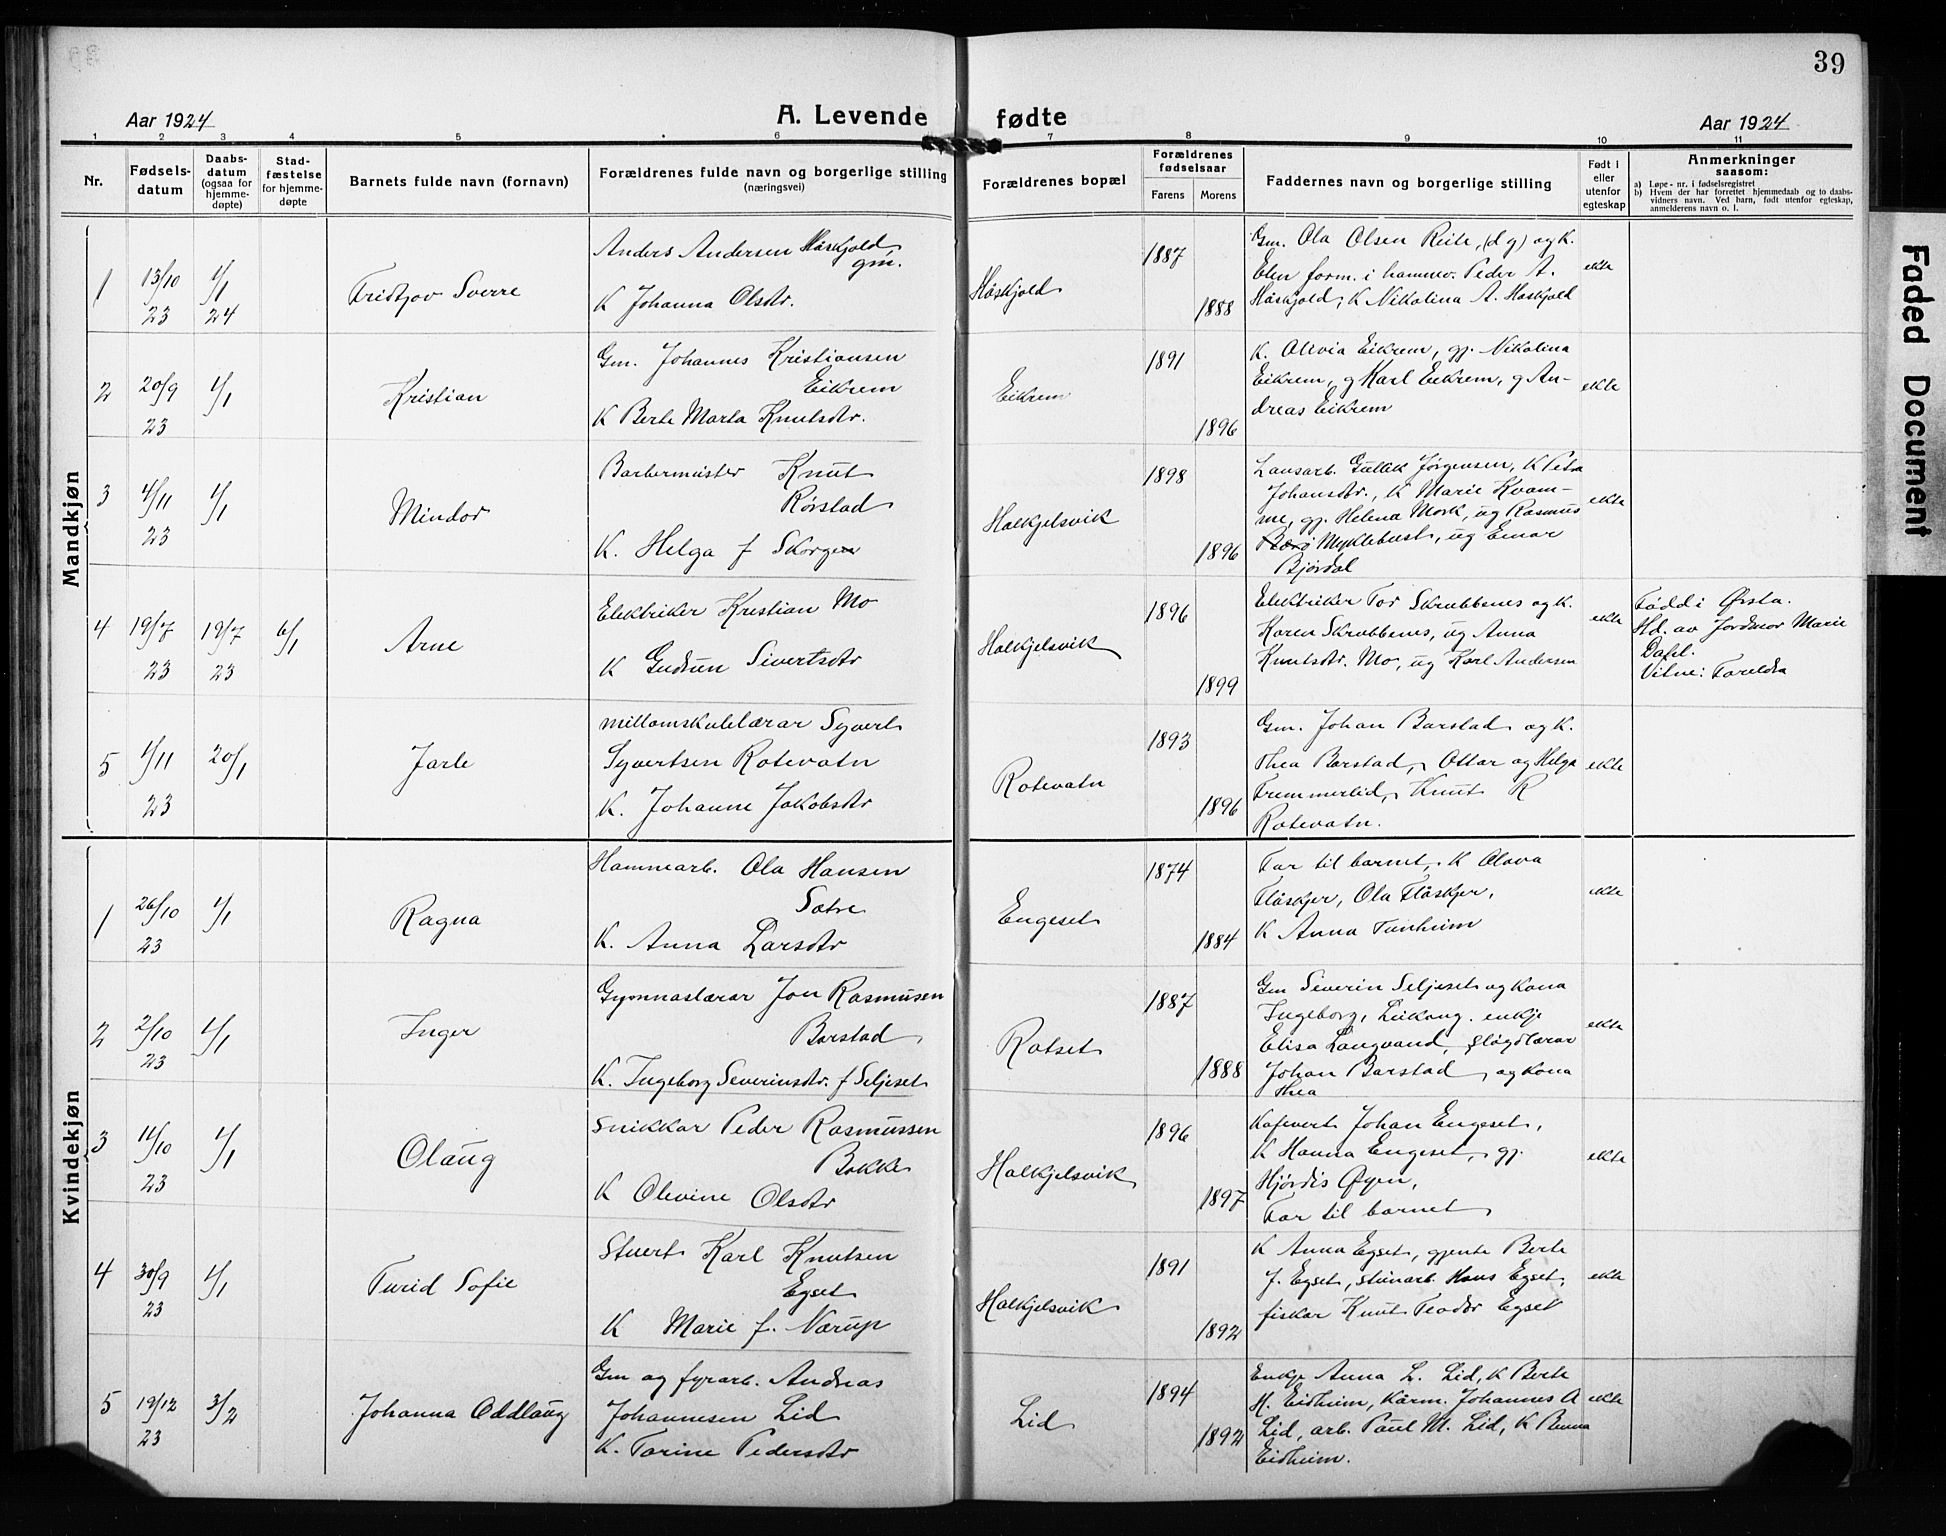 39
Aar 1924
A. Levende fødte
Aar 1924
1 2 3 4 5 6 7 8 9 10 11
Nr.
Fødsels-
datum
Daabs-
datum
(ogsaa for
hjemme-
døpte)
Stad-
fæstelse
for hjemme-
døpte
Barnets fulde navn (fornavn)
Forældrenes fulde navn og borgerlige stilling
(næringsvei)
Forældrenes bopæl
Forældrenes
fødselsaar
Farens
Morens
Faddernes navn og borgerlige stilling
Født i
eller
utenfor
egteskap
Anmerkninger
saasom:
a) Løpe-nr. i fødselsregistret
b) Hvem der har forrettet hjemmedaab og to daabs-
vidners navn. Ved barn, født utenfor egteskap,
anmelderens navn o. l.
Mandkjøn
1
13/10
23
1/1
24
Fridtjov Sverre
Anders Andersen Håskjold
gm.
K Johanna Olsdtr.
Håskjold
1887
1888
Gm. Ola Olsen Reite, (d g) og K.
Elen form. i hammer. Peder A.
Håskjold, K Nikolina A. Håskjold
ekte
2
20/9
23
1/1
Kristian
Gm. Johannes Kristiansen
Eikrem
K Berte Marta Knutsdtr.
Eikrem
1891
1896
K. Olivia Eikrem, gj. Nikolina
Eikrem, g Karl Eikrem, g An-
dreas Eikrem
ekte
3
4/11
23
1/1
Mindor
Barbermester Knut
Rørstad
K. Helga f Skorgen
Halkjelsvik
1898
1896
Lausarb. Gullik Jørgensen, K Petra
Johansdtr., K Marie Kvam-
me, gj. Helena Mork, ug Rasmus
Myklebust, ug Einar
Bjørdal
ekte
4
19/7
23
19/7
23
6/1
Arne
Elektriker Kristian Mo
K Gudrun Sivertsdtr
Halkjelsvik
1896
1899
Elektriker Tor Skrubbenes og K.
Karen Skrubbenes, ug Anna
Knutsdtr. Mo, ug Karl Andersen
ekte
Fødd i Ørsta.
Hd. av Jordmor Marie
Dahl.
Vitne: Foreldra
5
1/11
23
20/1
Jarle
Millomskulelærar Syvert
Syvertsen Rotevatn
K. Johanne Jakobsdtr
Rotevatn
1893
1896
Gm. Johan Barstad og K.
Thea Barstad, Ottar og Helga
Fremmerlid, Knut R
Rotevatn.
ekte
Kvindekjøn
1
26/10
23
1/1
Ragna
Hammarb. Ola Hansen
Sætre
K. Anna Larsdtr
Engeset
1874
1884
Far til barnet, K Olava
Flåskjer, Ola Flåskjer,
K Anna Tunheim
ekte
2
2/10
23
1/1
Inger
Gymnaslærar Jon Rasmusen
Barstad
K. Ingeborg Severinsdtr. f Seljeset
Rotset
1887
1888
Gm Severin Seljeset og kona
Ingeborg, Leikong. enkje
Elisa Langvand, sløgdlærar
Johan Barstad og kona
Thea
ekte
3
11/10
23
1/1
Olaug
Snikkar Peder Rasmussen
Bakke
K Olevine Olsdtr
Halkjelsvik
1896
1897
Kafevert Johan Engeset,
K Hanna Engeset, gj.
Hjørdis Øyen,
Far til barnet
ekte
4
30/9
23
1/1
Turid Sofie
Stuert Karl Knutsen
Egset
K Marie f. Nærup
Halkjelsvik
1891
1892
K Anna Egset, gjente Berte
J. Egset, stimarb. Hans Egset,
fiskar Knut Teodor Egset
ekte
5
19/12
23
3/2
Johanna Oddlaug
Gm og fyrarb. Andreas
Johannesen Lid
K. Torine Pedersdtr
Lid
1894
1892
Enkje Anna L. Lid, K Berte
M. Eidheim, Kårm. Johannes A
Lid, arb. Paul M. Lid, K Benna
Eidheim.
ekte
Faded Document